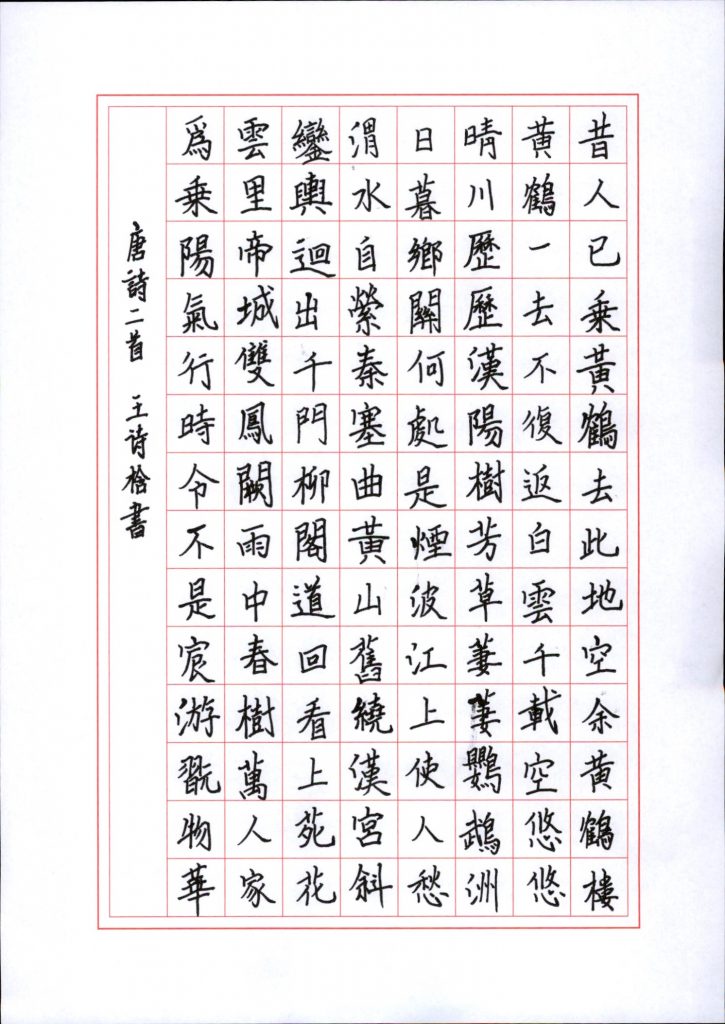 昔人已乗黃鶴去此地空余黄鶴樓
黃鶴一去不復返白雲千載空悠悠
晴川歷歷漢陽樹芳草萋萋鸚鵡洲
日暮鄉關何處是煙波江上使人愁
渭水自縈秦塞曲黃山舊繞漢宮斜
鑾輿迴出千門柳閣道回看上苑花
雲里帝城雙鳳闕雨中春樹萬人家
爲乗陽氣行時令不是宸游翫物華
唐詩二首 王诗桧書